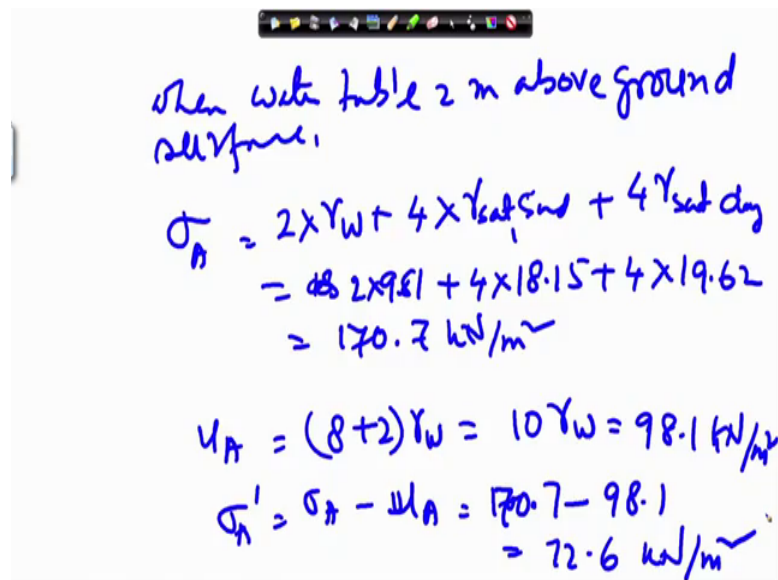 when water table 2 m above ground
surface.
σ_A = 2×γ_w + 4×γ_sat, sand + 4γ_sat clay
= 2×9.81 + 4×18.15 + 4×19.62
= 170.7 kN/m²
u_A = (8+2)γ_w = 10γ_w = 98.1 kN/m²
σ_A' = σ_A - u_A = 170.7 - 98.1
= 72.6 kN/m²